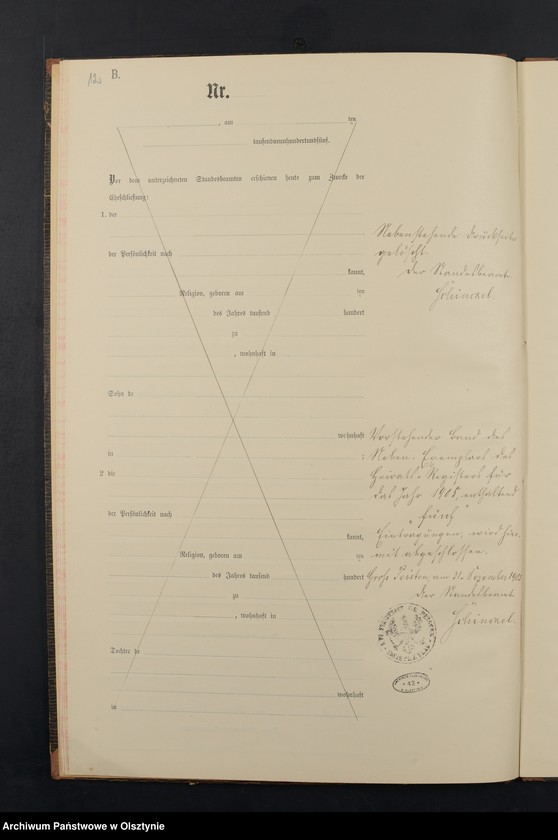 12. B.
Nr.
, am ten
tausendneunhundertundfünf.
Vor dem unterzeichneten Standesbeamten erschienen heute zum Zwecke der
Eheschließung:
1. der
der Persönlichkeit nach
kannt,
Religion, geboren am ten
des Jahres tausend hundert
zu
, wohnhaft in
Sohn de
wohnhaft
in
2. die
der Persönlichkeit nach
kannt,
Religion, geboren am ten
des Jahres tausend hundert
zu
, wohnhaft in
Tochter de
wohnhaft
in
Nebenstehende Druckseite
gelöscht.
Der Standesbeamte
Vorstehender Band des
Neben-Exemplars des
Heirats-Registers für
das Jahr 1905, enthaltend
"fünf"
Eintragungen, wird hier-
mit abgeschlossen.
Groß am 31. Dezember 1905
Der Standesbeamte
* 42 *
Archiwum Państwowe w Olsztynie